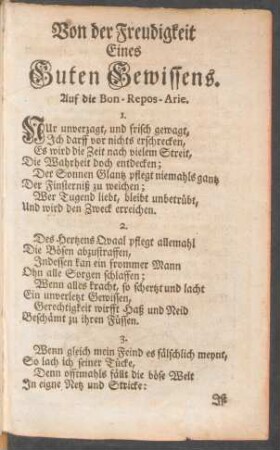 Von der Freudigkeit
Eines
Guten Gewissens.
Auf die Bon-Repos-Arie.
1.
NUr unverzagt, und frisch gewagt,
Ich darff vor nichts erschrecken,
Es wird die Zeit nach vielem Streit,
Die Wahrheit doch entdecken;
Der Sonnen Glantz pflegt niemahls gantz
Der Finsterniß zu weichen;
Wer Tugend liebt, bleibt unbetrübt,
Und wird den Zweck erreichen.
2.
Des Hertzens Qvaal pflegt allemahl
Die Bösen abzustraffen,
Indessen kan ein frommer Mann
Ohn alle Sorgen schlaffen;
Wenn alles kracht, so schertzt und lacht
Ein unverletzt Gewissen,
Gerechtigkeit wirfft Haß und Neid
Beschämt zu ihren Füssen.
3.
Wenn gleich mein Feind es fälschlich meynt,
So lach ich seiner Tücke,
Denn offtmahls fällt die böse Welt
In eigne Netz und Stricke:
Ist